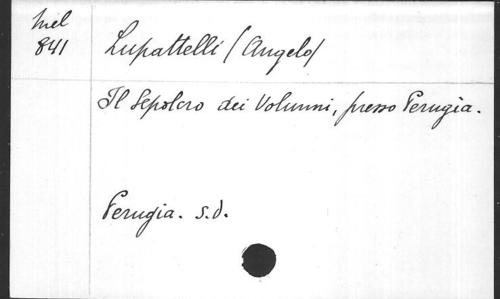 Mel
841
Lupattelli (Angelo)
Il Sepolcro dei Volumni, presso Perugia.
Perugia. s.d.